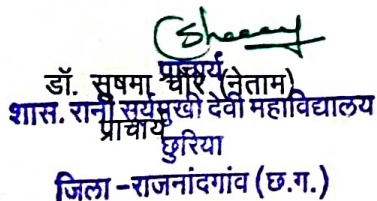 प्राचार्य
डॉ. सुषमा चौरे (नेताम)
शास. रानी सूर्यमुखी देवी महाविद्यालय
प्राचार्य
छुरिया
जिला -राजनांदगांव (छ.ग.)